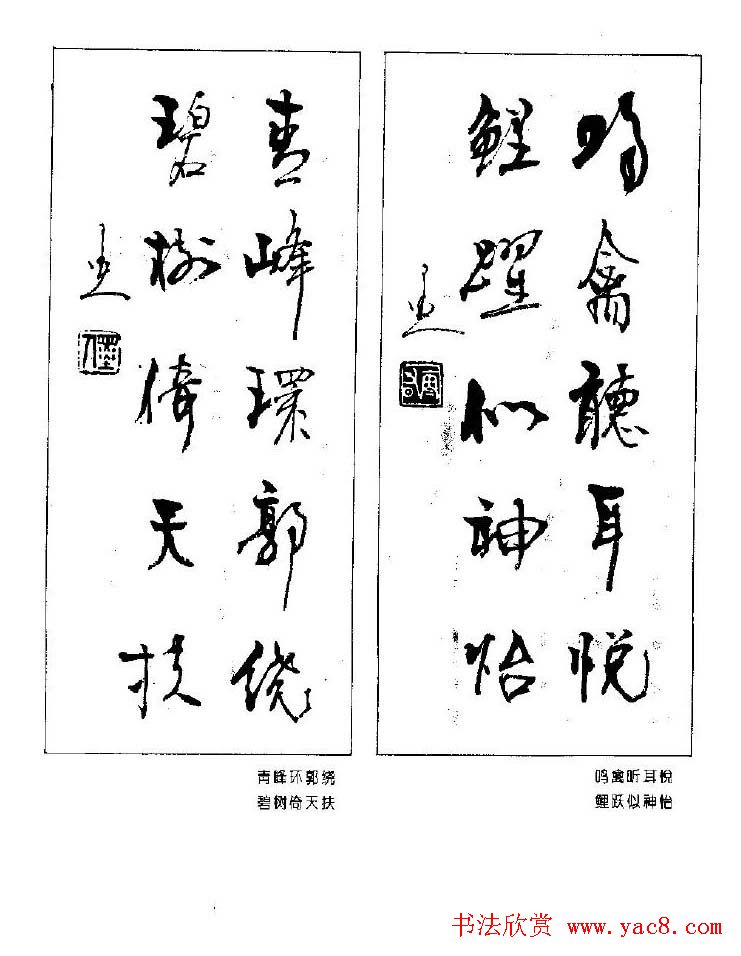 鸣禽聽耳悦
鲤躍似神怡
青峰環郭绕
碧樹倚天扶
鸣禽听耳悦
鲤跃似神怡
青峰环郭绕
碧树倚天扶
书法欣赏 www.yac8.com